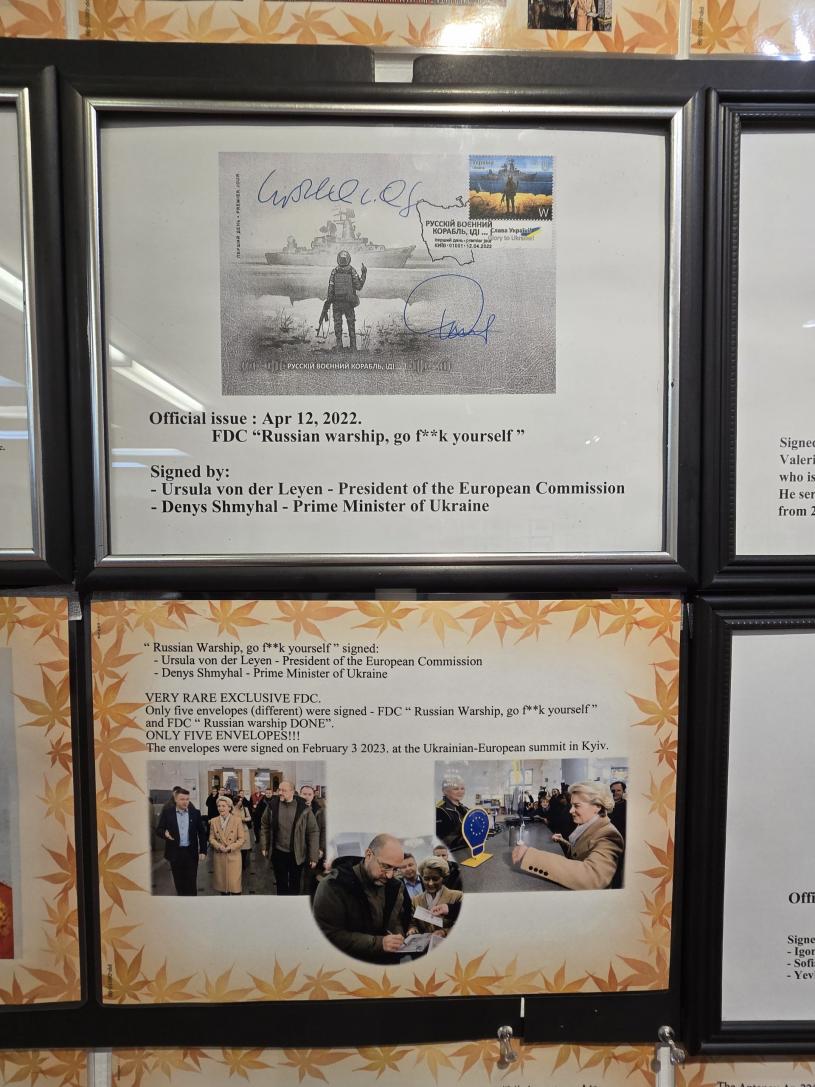 ПЕРШИЙ ДЕНЬ • PREMIER JOUR
Україна
W
РУССКІЙ ВОЕННИЙ
КОРАБЛЬ, ІДІ ...
Слава Україні!
Glory to Ukraine!
перший день • premier jour
КИЇВ • 01001 • 12.04.2022
РУССКІЙ ВОЕННИЙ КОРАБЛЬ, ІДІ ...
Official issue : Apr 12, 2022.
FDC “Russian warship, go f**k yourself ”
Signed by:
- Ursula von der Leyen - President of the European Commission
- Denys Shmyhal - Prime Minister of Ukraine
“ Russian Warship, go f**k yourself ” signed:
- Ursula von der Leyen - President of the European Commission
- Denys Shmyhal - Prime Minister of Ukraine
VERY RARE EXCLUSIVE FDC.
Only five envelopes (different) were signed - FDC “ Russian Warship, go f**k yourself ”
and FDC “ Russian warship DONE”.
ONLY FIVE ENVELOPES!!!
The envelopes were signed on February 3 2023. at the Ukrainian-European summit in Kyiv.
Signed
Valeri
who is
He ser
from 2
Offi
Signe
- Igor
- Sofi
- Yev